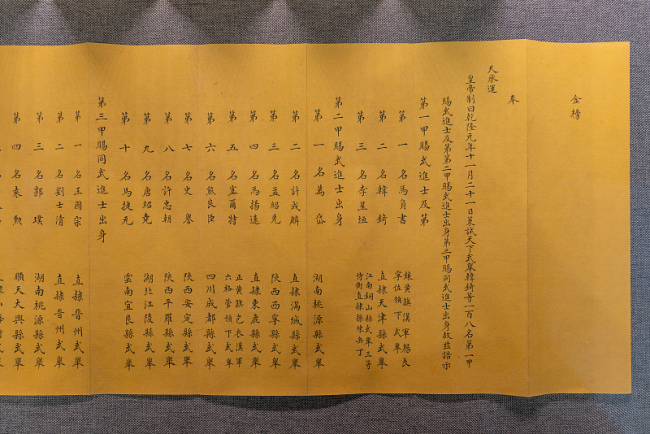 金榜
奉
天承運
皇帝制曰乾隆元年十一月二十一日策試天下武舉韓錡等一百八名第一甲
賜武進士及第第二甲賜武進士出身第三甲賜同武進士出身故茲誥示
第一甲賜武進士及第
第一名馬負書 鑲黃旗漢軍楊長春佐領下武舉
第二名韓錡 直隸天津縣武舉
第三名李星垣 江南銅山縣武舉三等侍衛直隸縣人
第二甲賜武進士出身
第一名萬岱 湖南桃源縣武舉
第二名許成麟 直隸滿城縣武舉
第三名孟紹先 陝西西寧縣武舉
第四名馬揚遠 直隸東鹿縣武舉
第五名宣爾特 正黃旗包衣漢軍六格管領下武舉
第六名熊良臣 四川成都縣武舉
第七名史譽 陝西安定縣武舉
第八名許忠朝 陝西平羅縣武舉
第九名唐紹堯 湖北江陵縣武舉
第十名馬捷元 雲南宜良縣武舉
第三甲賜同武進士出身
第一名王國宗 直隸晉州武舉
第二名劉士清 直隸晉州武舉
第三名郭璞 湖南桃源縣武舉
第四名袁勲 順天大興縣武舉